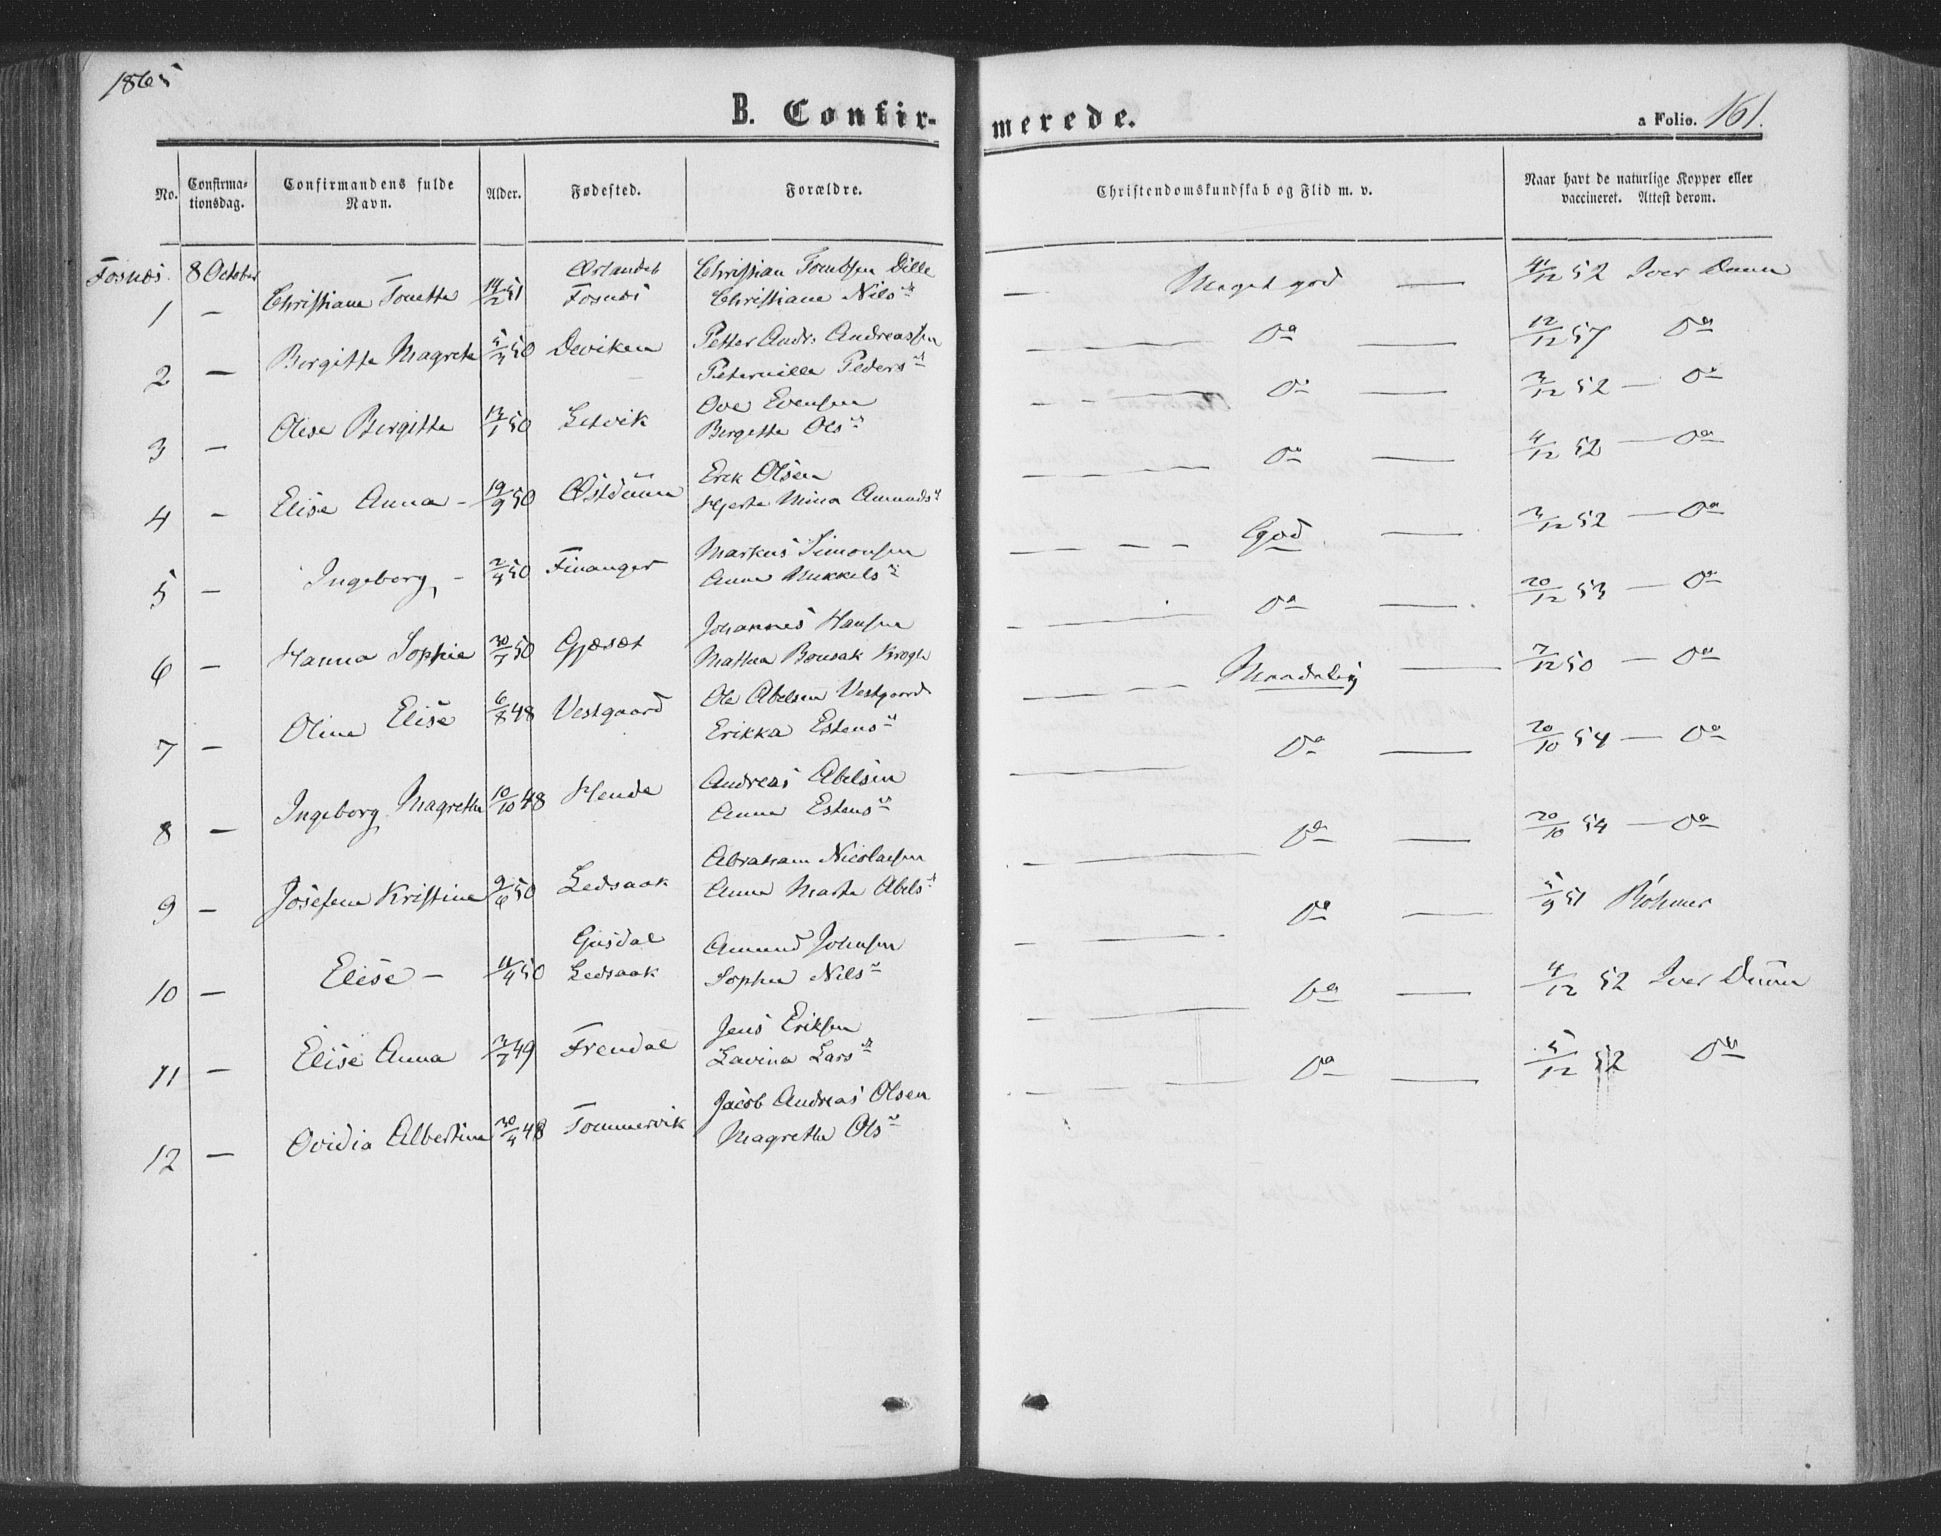 1865
B. Confir-
merede.
a Folio. 161.
No.
Confirma-
tionsdag.
Confirmandens fulde
Navn.
Alder.
Fødested.
Forældre.
Christendomskundskab og Flid m. v.
Naar havt de naturlige Kopper eller
vaccineret. Attest derom.
Fosnæs 8 October
1 — Christiane Tonette 14/2 51 Ørlandet Fosnæs Christian Tombsen Dille Christiane Nilsdt — Meget god — 4/12 52 Iver Duun
2 — Birgitte Magreta 5/4 50 Deviken Petter Andr. Andreassen Peternille Pedersdt — Do — 12/12 57 Do
3 — Olise Birgitte 13/1 50 Setvik Ove Evensen Birgette Olsdt — Do 3/12 52 — Do
4 - Elise Anna - 19/9 50 Østduun Erik Olsen Hjerte Mina Amundsdt — Do — 4/12 52 — Do
5 — Ingeborg - 2/4 50 Finanger Markus Simonsen Anne Mikkelsdt — God — 3/12 52 — Do
6 — Hanna Sophie 30/7 50 Gjæsæt Johannes Hansen Mathea Bousak Krogh — Do — 20/12 53 — Do
7 — Oline Elise 6/8 48 Vestgaard Ole Abelsen Vestgaard Erikka Estensdt — Maadelig — 7/12 50 — Do
8 — Ingeborg Magrethe 10/10 48 Hende Andreas Abelsen Anne Estensdt — Do — 20/10 54 — Do
9 — Josefene Kristine 9/6 50 Ledsaak Abraham Nicolaisen Anne Marta Abelsdt — Do — 20/10 54 — Do
10 — Elise — 11/4 50 Gjisdal Ledsaak Amund Johnsen Sophie Nilsdt — Do — 5/9 51 Böhmer
11 — Elise Anna 3/7 49 Frendal Jens Eriksen Lavina Larsdt — Do — 4/12 52 Iver Duun
12 — Ovidia Albertine 30/4 48 Tommervik Jacob Andreas Olsen Magrethe Olsdt — Do — 5/12 52 Do